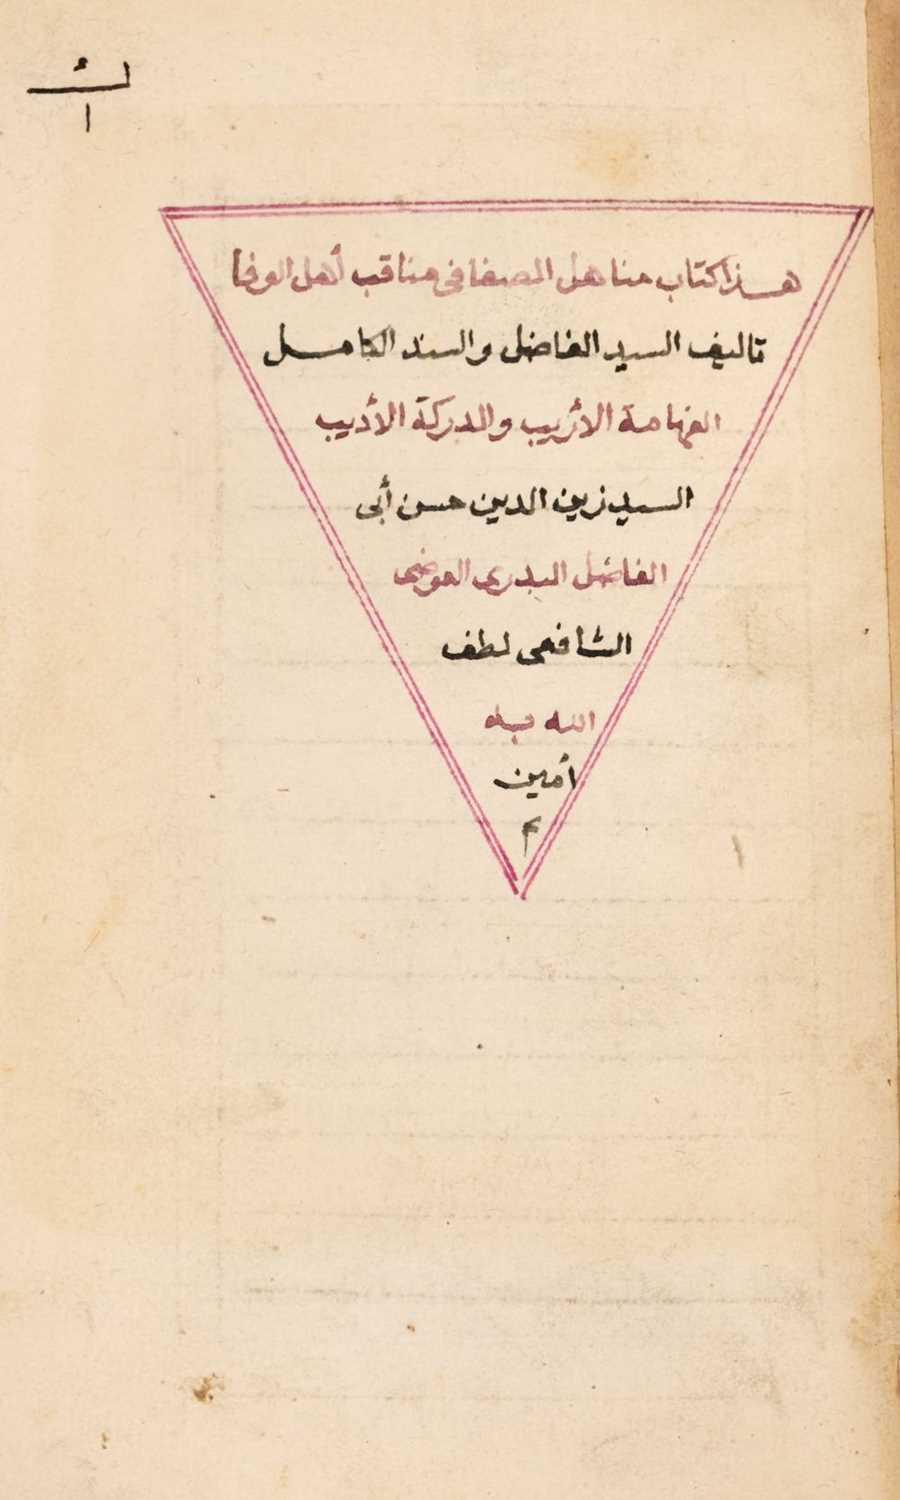 هذا كتاب مناهل الصفا فى مناقب أهل الوفا
تاليف السيد الفاضل والسند الكامل
الفهامة الأريب والمدركة الأديب
السيد زين الدين حسن أبى
الفاضل البدرى العوضى
الشافعى لطف
الله به
أمين
م